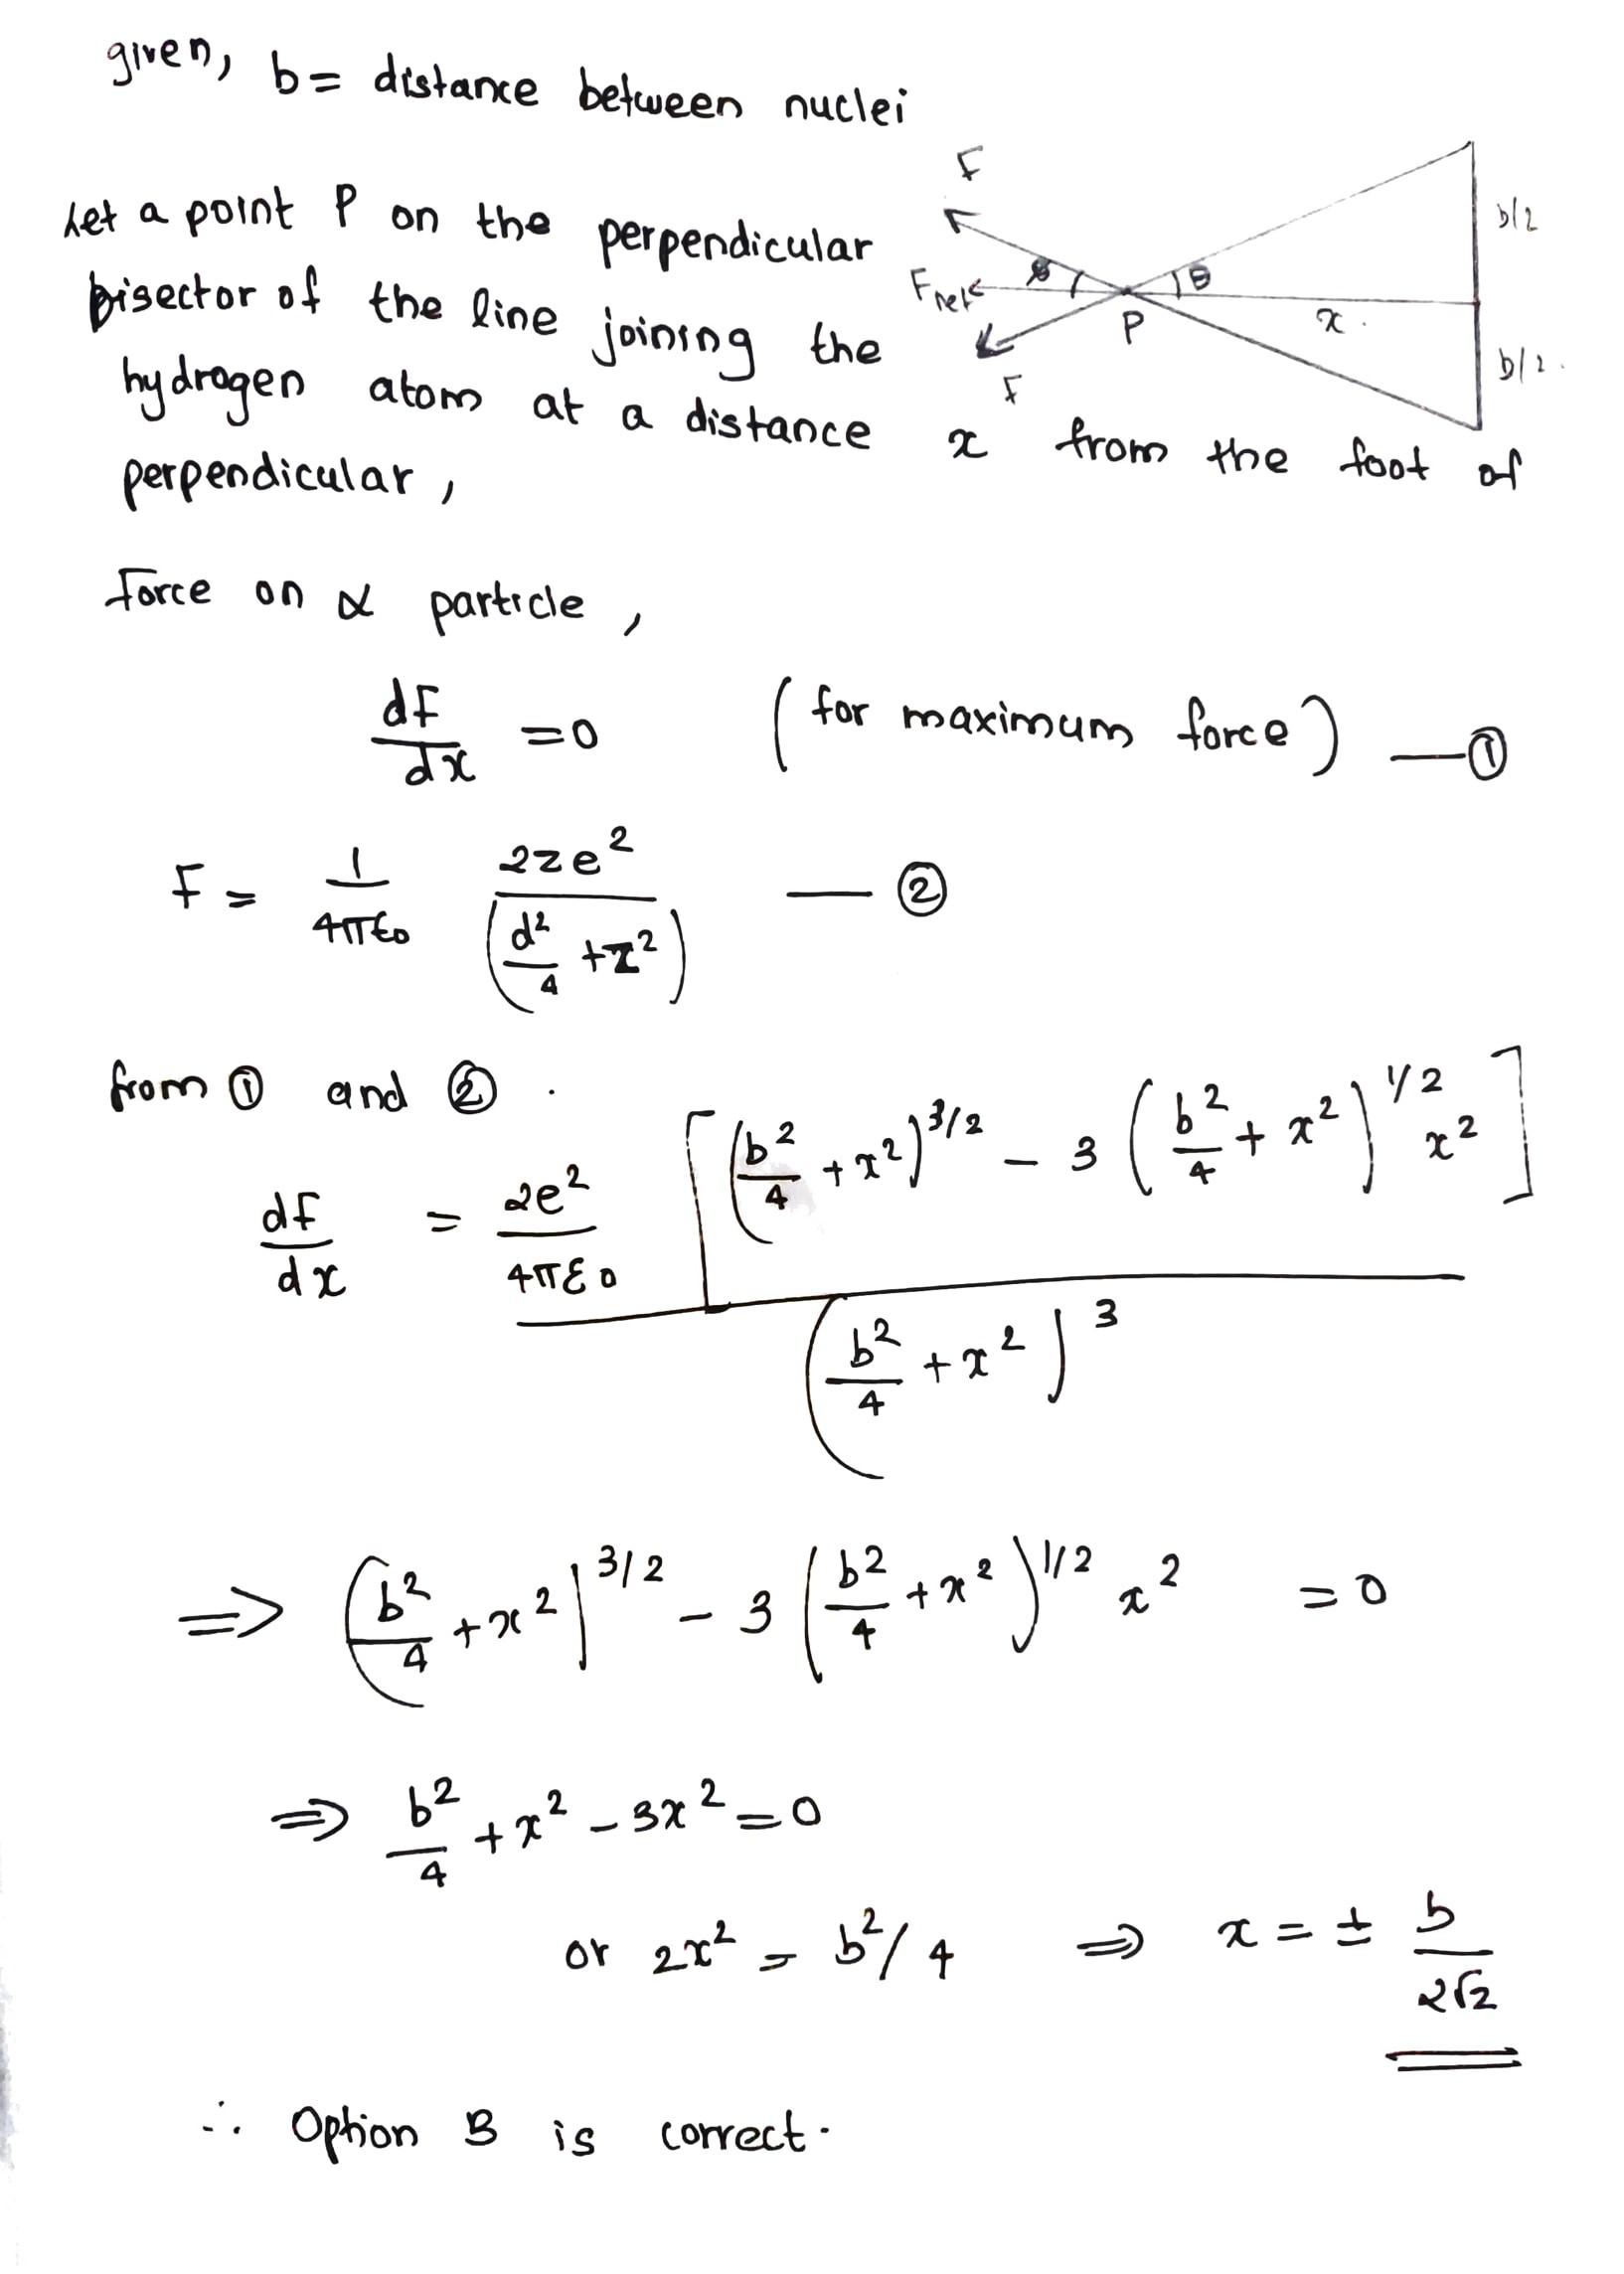 given, b = distance between nuclei
F
Let a point P on the perpendicular
b/2
bisector of the line joining the
Fnet
θ
θ
P
x
hydrogen atom at a distance x from the foot of
F
b/2
perpendicular,
Force on α particle,
dF/dx = 0 (for maximum force) — ①
F = 1/4πε0 2ze²/(d²/4 + x²) — ②
from ① and ② .
dF/dx = 2e²/4πε0 [(b²/4 + x²)^3/2 − 3 (b²/4 + x²)^1/2 x²] / (b²/4 + x²)^3
⇒ (b²/4 + x²)^3/2 − 3 (b²/4 + x²)^1/2 x² = 0
⇒ b²/4 + x² − 3x² = 0
or 2x² = b²/4 ⇒ x = ± b/2√2
∴ Option B is correct.